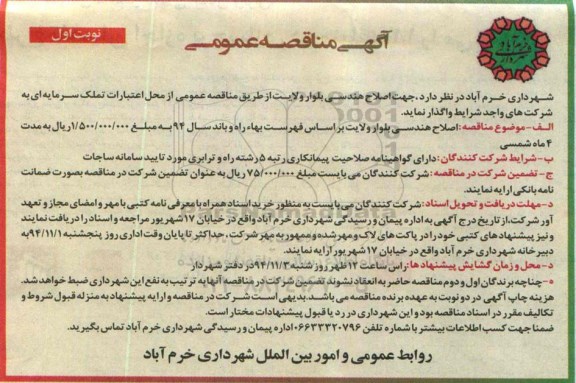 نوبت اول
آگهی مناقصه عمومی
خرم آباد
شهرداری
شهرداری خرم آباد در نظر دارد ، جهت اصلاح هندسی بلوار ولایت از طریق مناقصه عمومی از محل اعتبارات تملک سرمایه ای به
شرکت های واجد شرایط واگذار نماید.
الف-موضوع مناقصه: اصلاح هندسی بلوار ولایت بر اساس فهرست بهاء راه و باند سال ۹۴ به مبلغ ۱/۵۰۰/۰۰۰/۰۰۰ریال به مدت
۴ ماه شمسی
ب-شرایط شرکت کنندگان: دارای گواهینامه صلاحیت پیمانکاری رتبه ۵ رشته راه و ترابری مورد تایید سامانه ساجات
ج- تضمین شرکت در مناقصه: شرکت کنندگان می بایست مبلغ ۷۵/۰۰۰/۰۰۰ ریال به عنوان تضمین شرکت در مناقصه بصورت ضمانت
نامه بانکی ارایه نمایند.
د-مهلت دریافت و تحویل اسناد: شرکت کنندگان می بایست به منظور خرید اسناد همراه با معرفی نامه کتبی با مهر و امضای مجاز و تعهد
آور شرکت، از تاریخ درج آگهی به اداره پیمان و رسیدگی شهرداری خرم آباد واقع در خیابان ۱۷ شهریور مراجعه و اسناد را دریافت نمایند
و نیز پیشنهاد های کتبی خود را در پاکت های لاک و مهر شده و ممهور به مهر شرکت ، حداکثر تا پایان وقت اداری روز پنجشنبه ۹۴/۱۱/۱ به
دبیر خانه شهرداری خرم آباد واقع در خیابان ۱۷ شهریور ارایه نمایند.
د-محل و زمان گشایش پیشنهاد ها: راس ساعت ۱۲ ظهر روز شنبه ۹۴/۱۱/۳ در دفتر شهردار
ه-چناچه برندگان اول و دوم مناقصه حاضر به انعقاد نشوند تضمین شرکت در مناقصه آنها به ترتیب به نفع این شهرداری ضبط خواهد شد.
هزینه چاپ آگهی در دو نوبت به عهده برنده مناقصه می باشد. بدیهی است شرکت در مناقصه و ارایه پیشنهاد به منزله قبول شروط و
تکالیف مقرر در اسناد مناقصه بود و این شهرداری در رد یا قبول پیشنهادات مختار است.
ضمنا جهت کسب اطلاعات بیشتر با شماره تلفن ۰۶۶۳۳۳۲۰۷۹۶ اداره پیمان و رسیدگی شهرداری خرم آباد تماس بگیرید.
روابط عمومی و امور بین الملل شهرداری خرم آباد